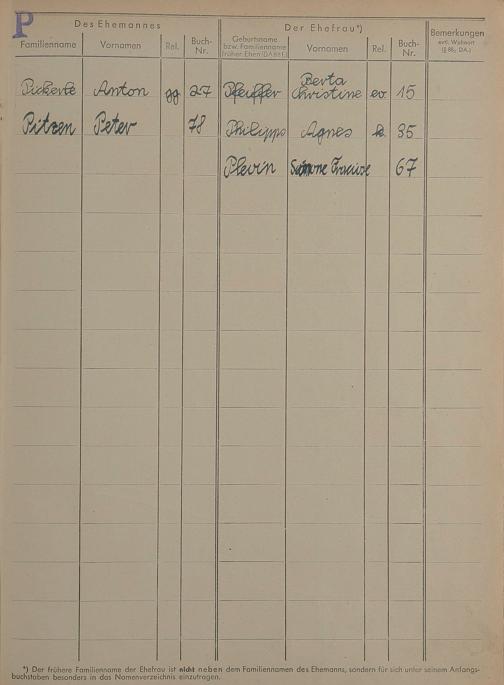 P
Des Ehemannes
Der Ehefrau*)
Familienname
Vornamen
Rel.
Buch-
Nr.
Geburtsname
bzw. Familienname
Vornamen
Rel.
Buch-
Nr.
Bemerkungen
evtl. Wohnort
Anton gg 27 Pfeiffer Berta
Christine ev 15
Pitzen Peter 78 Philipps Agnes k. 35
Plevin Simone 67
*) Der frühere Familienname der Ehefrau ist nicht neben dem Familiennamen des Ehemanns, sondern für sich unter seinem Anfangs-
buchstaben besonders in das Namenverzeichnis einzutragen.